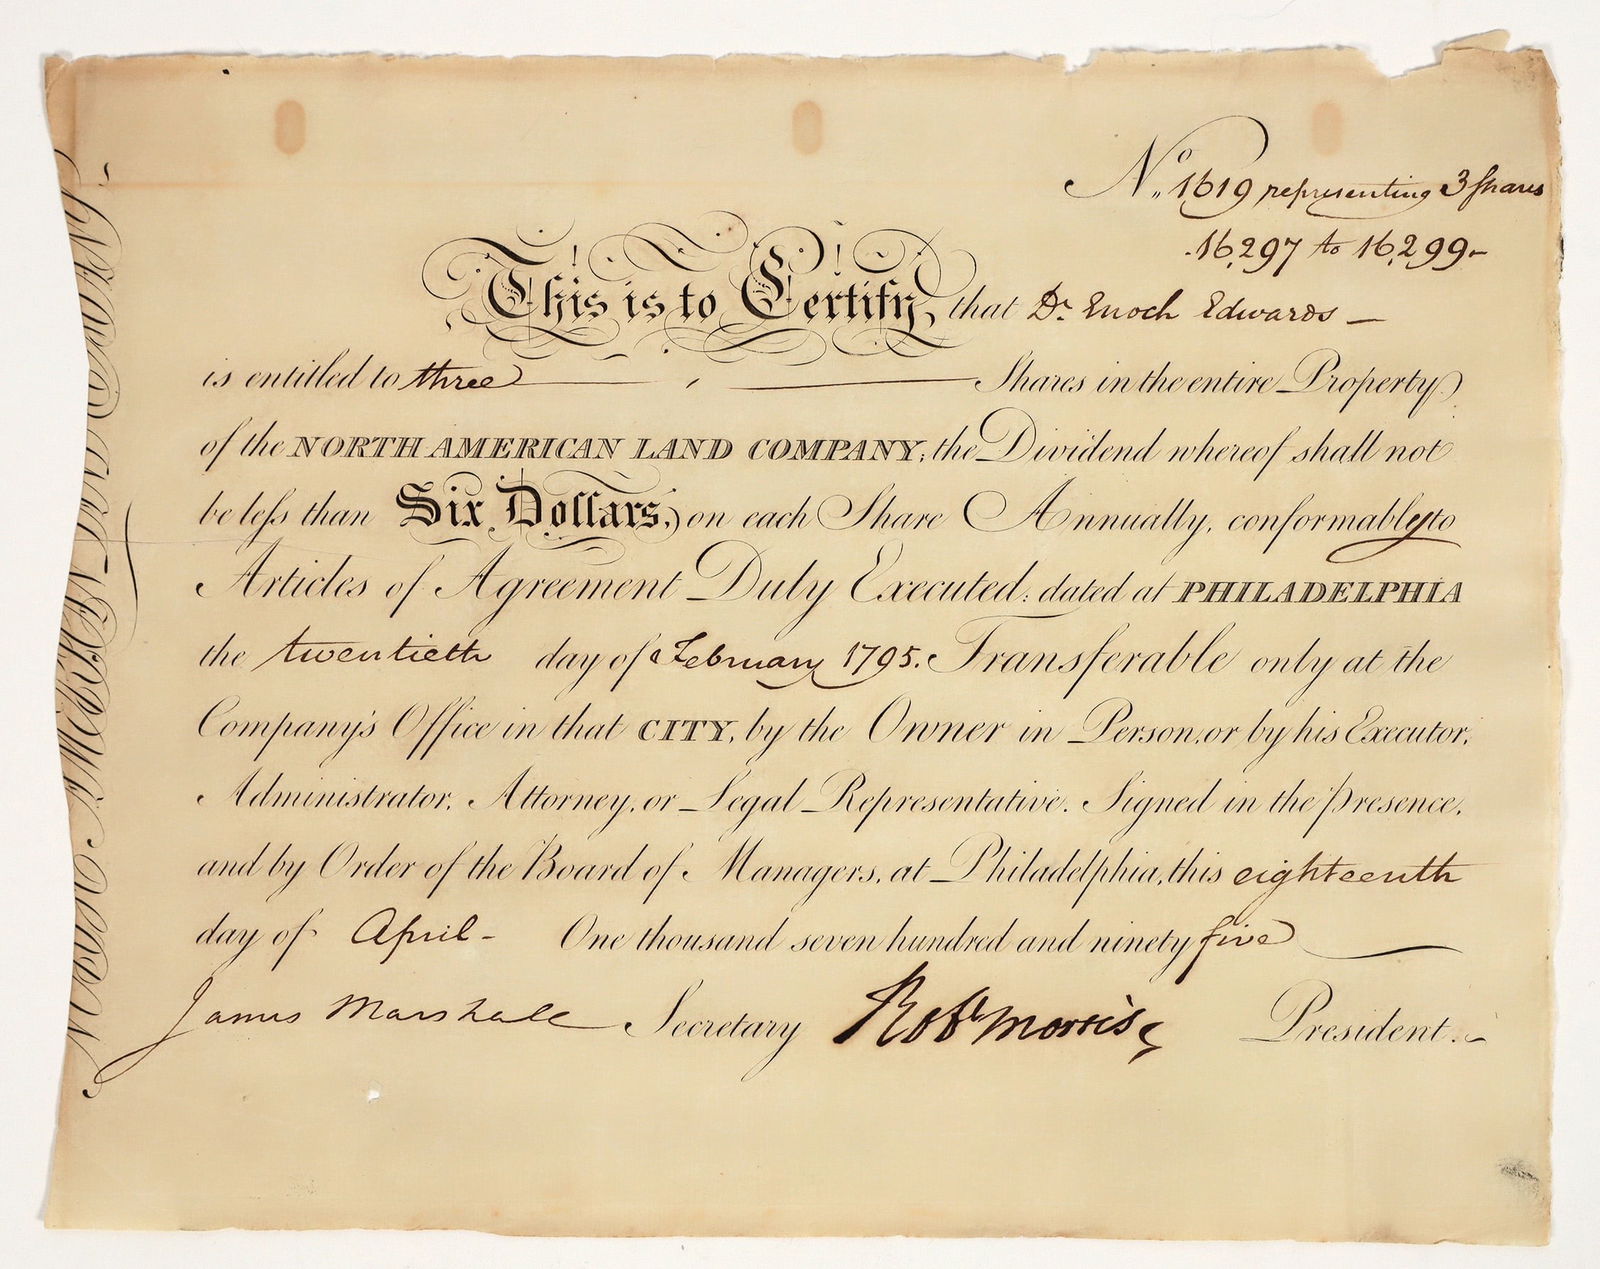 No. 1619 representing 3 shares
16,297 to 16,299-
This is to Certify, that Dr. Enoch Edwards —
is entitled to three — Shares in the entire Property
of the NORTH AMERICAN LAND COMPANY; the Dividend whereof shall not
be less than Six Dollars, on each Share Annually, conformably to
Articles of Agreement Duly Executed: dated at PHILADELPHIA
the twentieth day of February 1795. Transferable only at the
Company's Office in that CITY, by the Owner in Person, or by his Executor,
Administrator, Attorney, or Legal Representative. Signed in the presence,
and by Order of the Board of Managers, at Philadelphia, this eighteenth
day of April - One thousand seven hundred and ninety five
James Marshall Secretary Robt Morris President.
NORTH AMERICAN LAND COMPANY